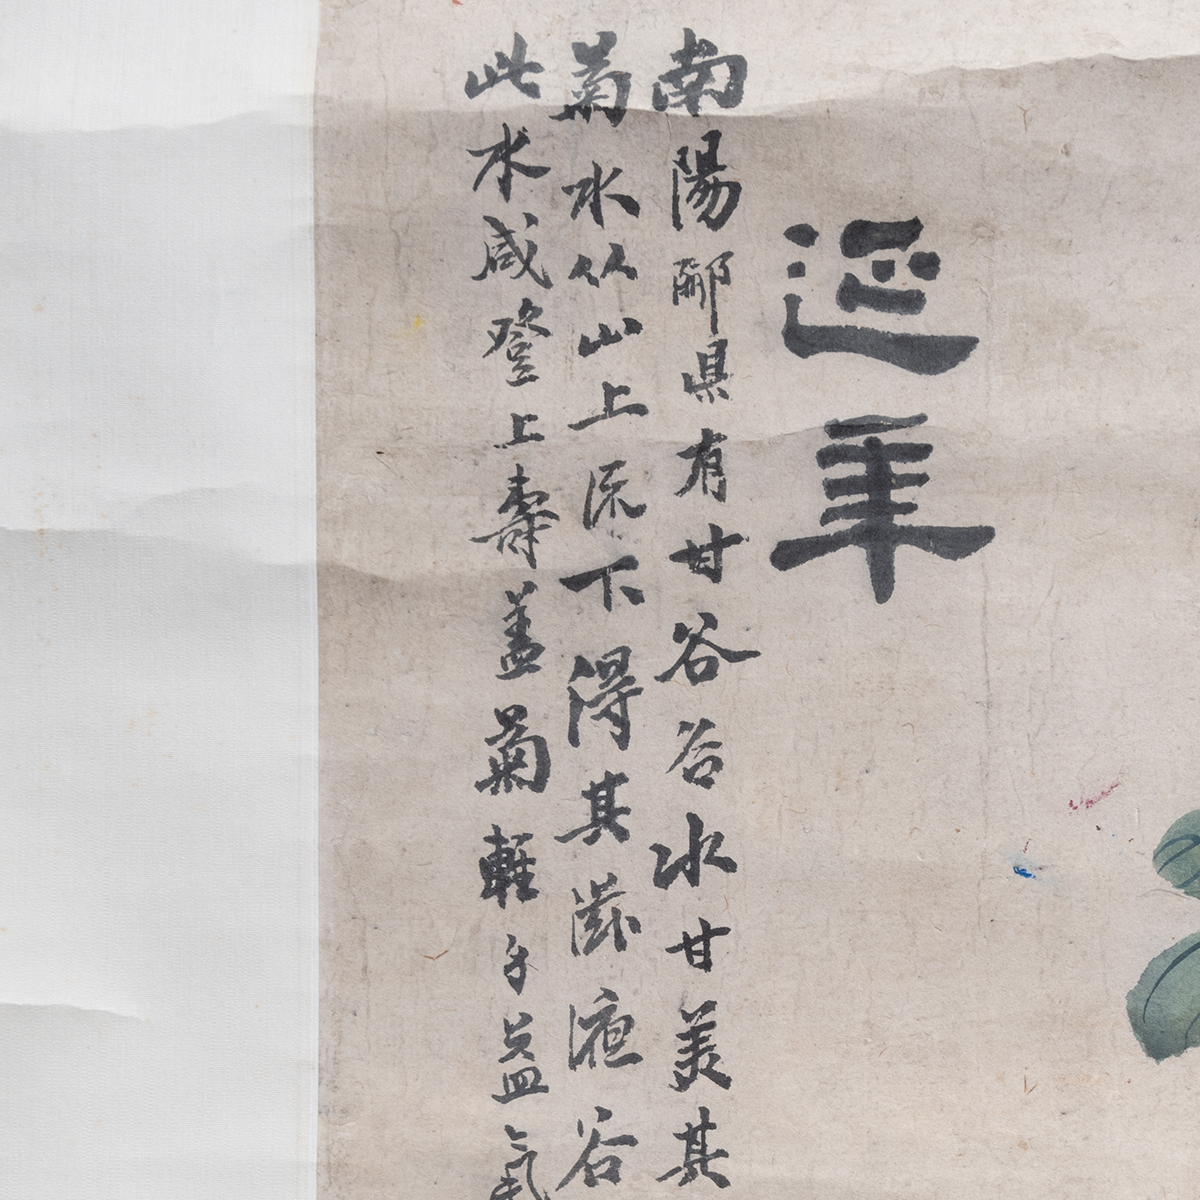 延年
南陽郦県有甘谷谷水甘美其
菊水从山上流下得其滋液谷
此水咸登上壽盖菊軽身益氣